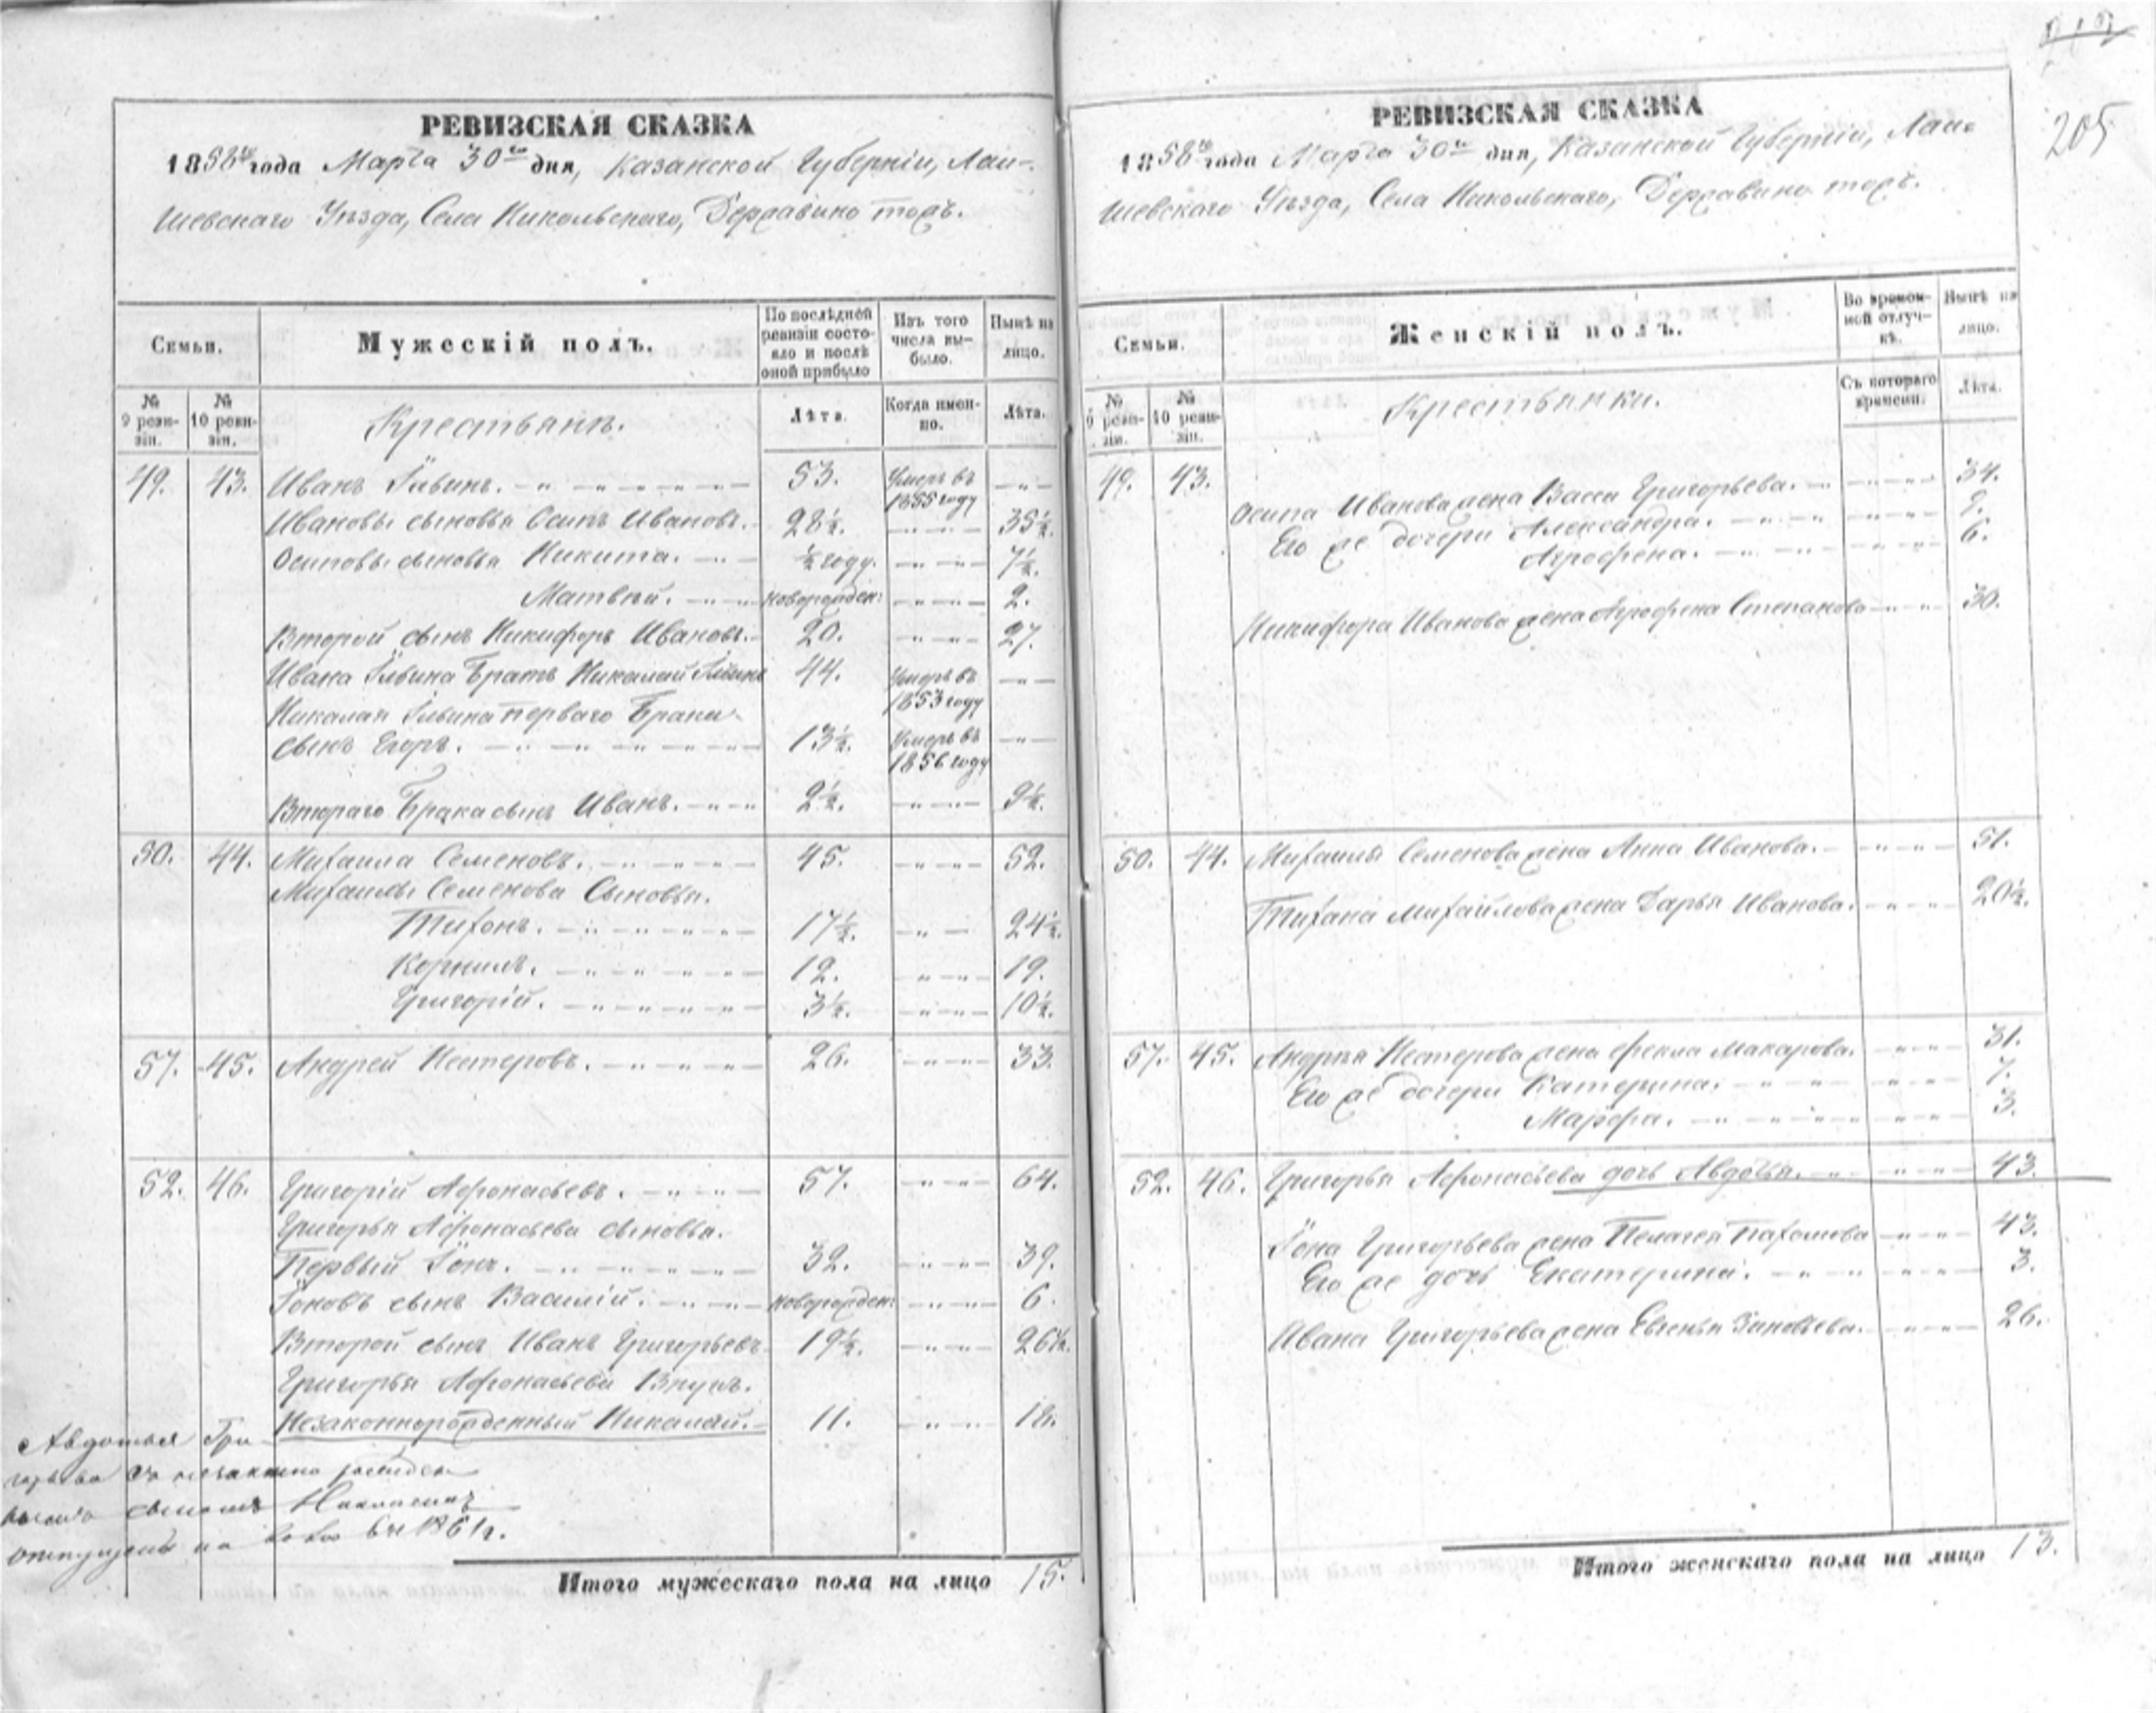 205
РЕВИЗСКАЯ СКАЗКА
1858го года Марта 30го дня, Казанской Губерніи, Лаи-
шевскаго Уѣзда, Села Никольскаго, Державино тожъ.
Семьи.
Мужескій полъ.
По послѣдней ревизіи состояло и послѣ оной прибыло
Изъ того числа выбыло.
Нынѣ на лицо.
№ 9 ревизіи.
№ 10 ревизіи.
Крестьянъ.
Лѣта.
Когда именно.
Лѣта.
49. 43. Иванъ Ильинъ. 53. Умеръ въ 1855 году
Ивановы сыновья Осипъ Ивановъ. 28½. 35½.
Осиповы сыновья Никита. ½ году. 7½.
Матвей. новорожден: 2.
Второй сынъ Никифоръ Ивановъ. 20. 27.
Ивана Ильина Братъ Николай Ильинъ 44. Умеръ въ 1853 году
Николая Ильина перваго Брака
сынъ Егоръ. 13½. Умеръ въ 1856 году
Втораго Брака сынъ Иванъ. 2½. 9½.
50. 44. Михаила Семеновъ. 45. 52.
Михаилы Семенова Сыновья.
Тихонъ. 17½. 24½.
Корнилъ. 12. 19.
Григорій. 3½. 10½.
57. 45. Андрей Нестеровъ. 26. 33.
52. 46. Григорій Афонасьевъ. 57. 64.
Григорья Афонасьева сыновья.
Первый Іонъ. 32. 39.
Іоновъ сынъ Василій. новорожден: 6.
Второй сынъ Иванъ Григорьевъ 19½. 26½.
Григорья Афонасьева Внукъ.
Незаконнорожденный Николай. 11. 18.
Авдотья Гри
горьева съ незаконно рожден
нымъ сыномъ Николаемъ
отпущены на волю въ 1861 г.
Итого мужескаго пола на лицо 15.
РЕВИЗСКАЯ СКАЗКА
1858го года Марта 30го дня, Казанской Губерніи, Лаи-
шевскаго Уѣзда, Села Никольскаго, Державино тожъ.
Семьи.
Женскій полъ.
Во временной отлучкѣ.
Нынѣ на лицо.
№ 9 ревизіи.
№ 10 ревизіи.
Крестьянки.
Съ котораго времени.
Лѣта.
49. 43. Осипа Иванова жена Васса Григорьева. 34.
Его же дочери Александра. 9.
Агрофена. 6.
Никифора Иванова жена Агрофена Степанова 30.
50. 44. Михаилы Семенова жена Анна Иванова. 51.
Тихана Михайлова жена Дарья Иванова. 20½.
57. 45. Андрея Нестерова жена Фекла Макарова. 31.
Его же дочери Катерина. 7.
Марфа. 3.
52. 46. Григорья Афонасьева дочь Авдотья. 43.
Іона Григорьева жена Пелагея Пахомова 43.
Его же дочь Екатерина. 3.
Ивана Григорьева жена Евгенья Зиновьева. 26.
Итого женскаго пола на лицо 13.